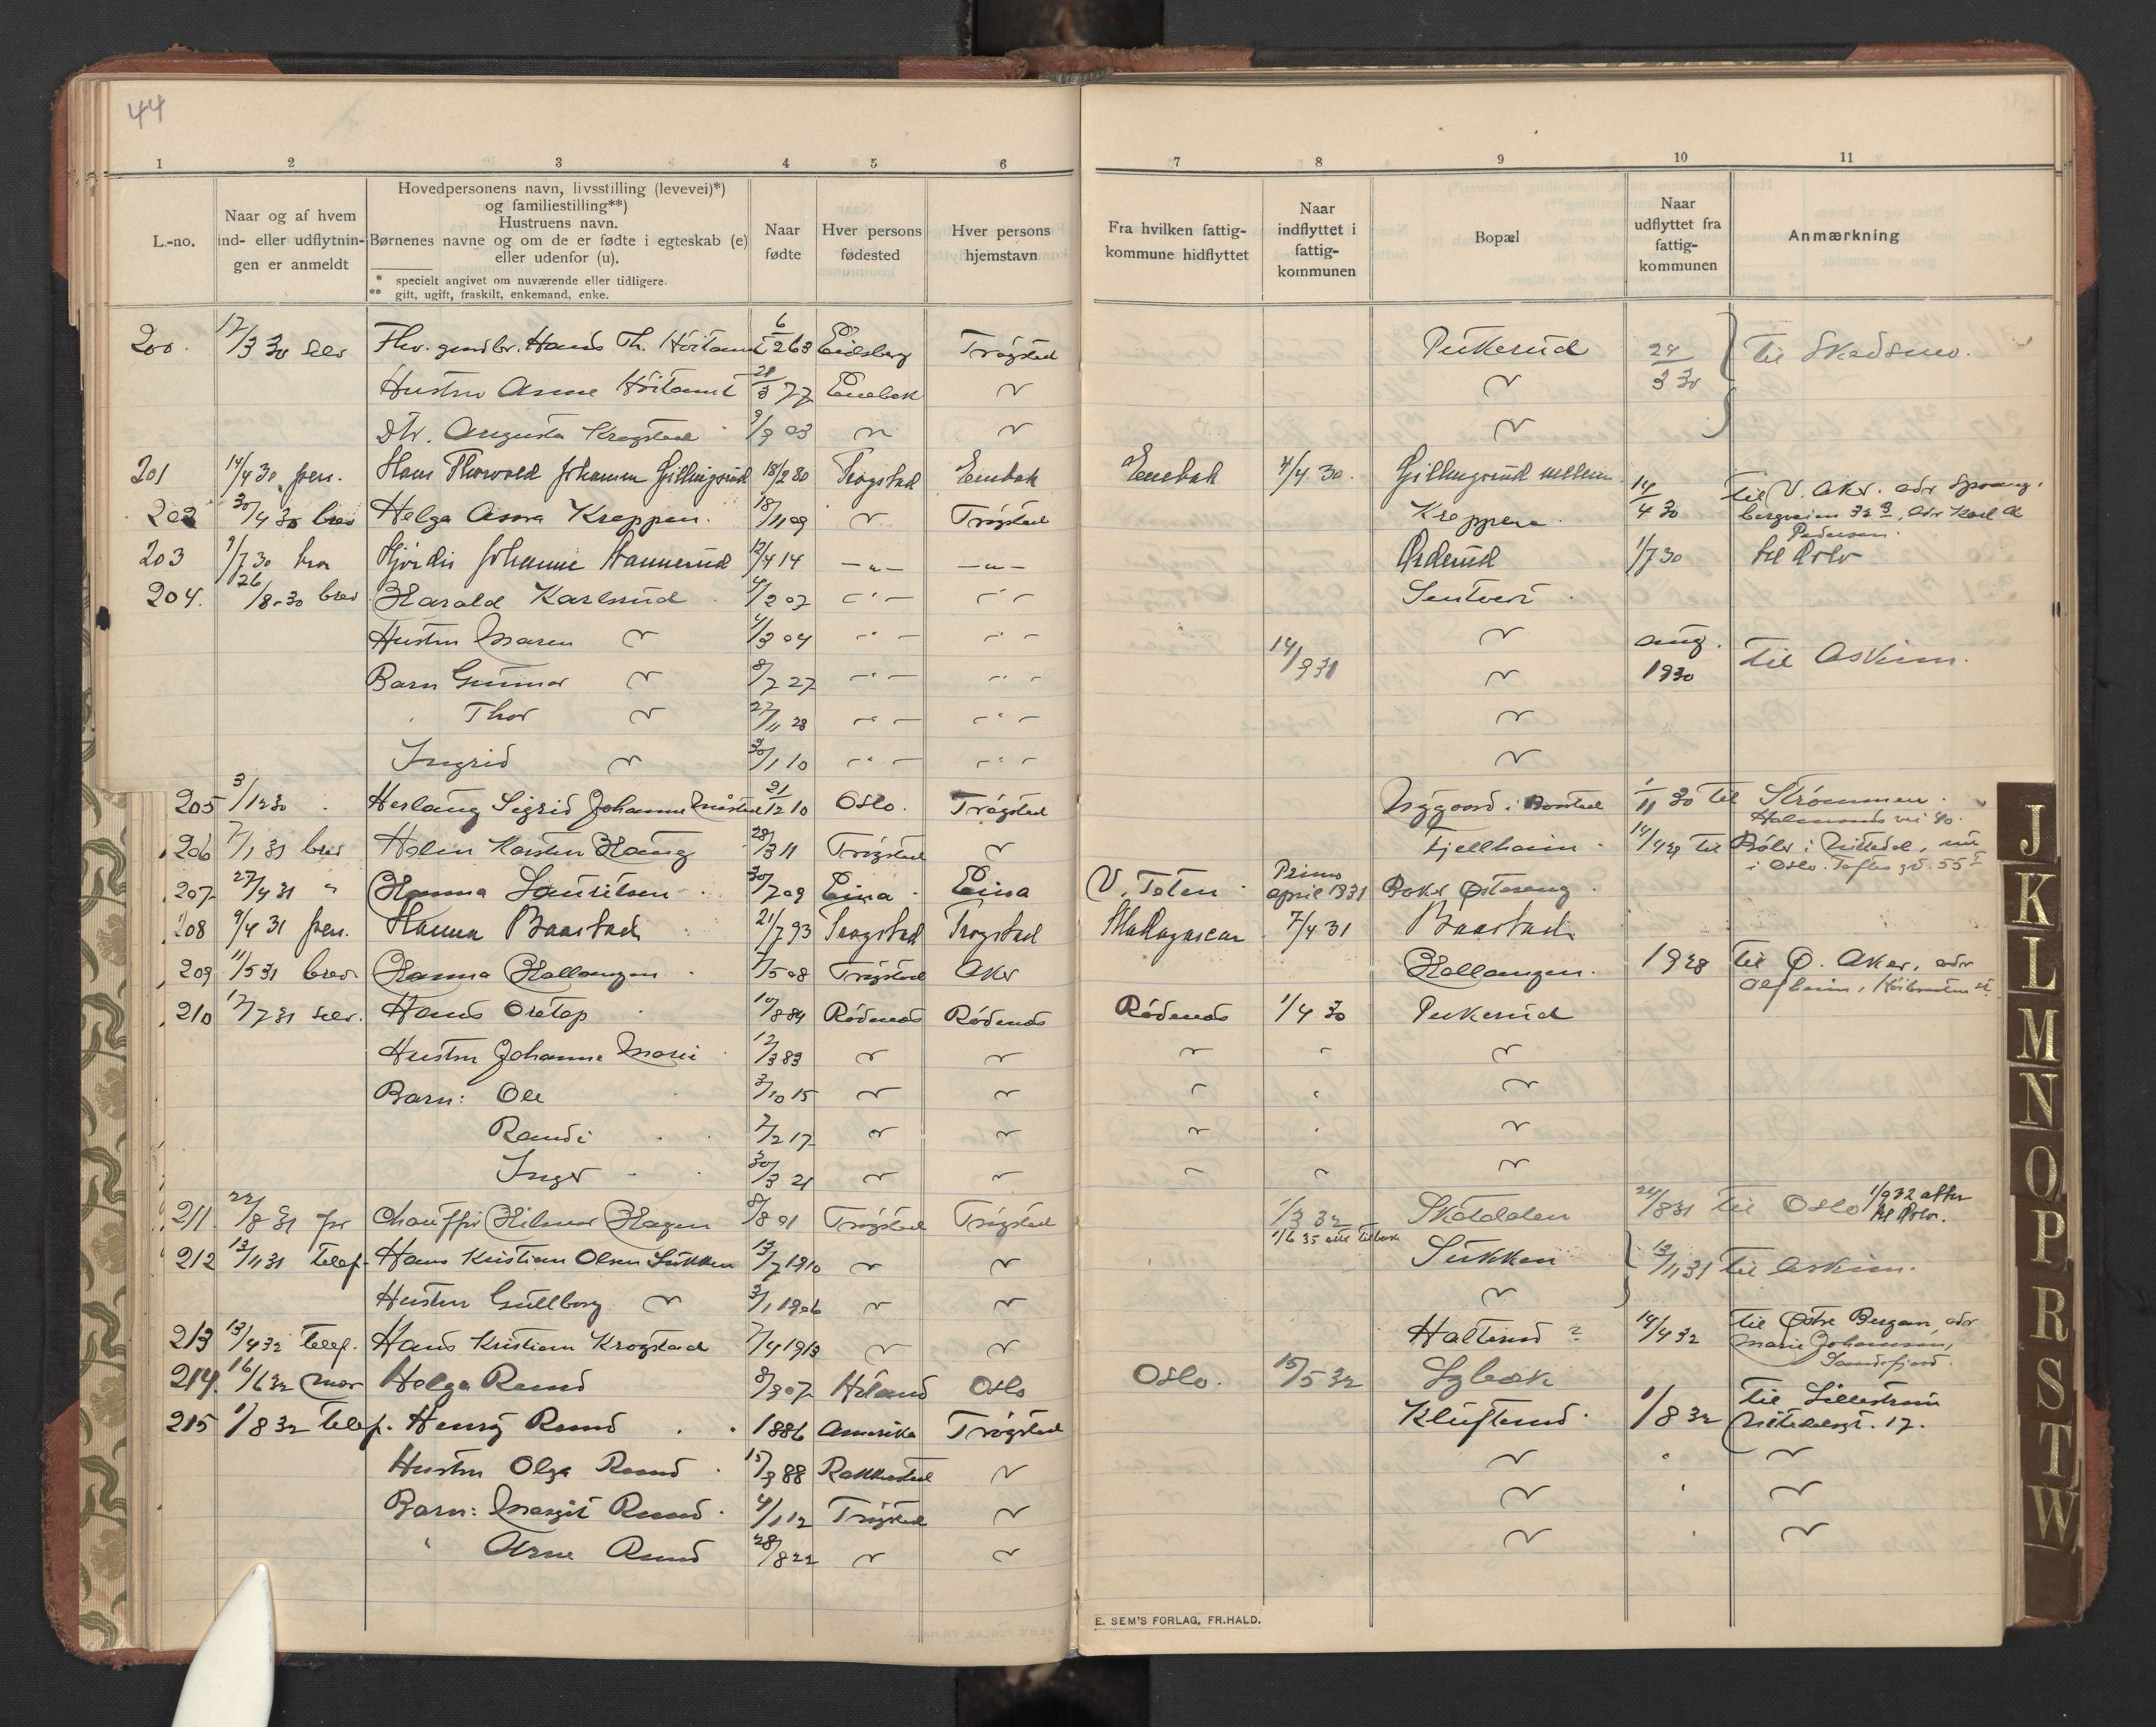 44
1 2 3 4 5 6 7 8 9 10 11
L.-no.
Naar og af hvem
ind- eller udflytnin-
gen er anmeldt
Hovedpersonens navn, livsstilling (levevei)*)
og familiestilling**)
Hustruens navn.
Børnenes navne og om de er fødte i egteskab (e)
eller udenfor (u).
* specielt angivet om nuværende eller tidligere.
** gift, ugift, fraskilt, enkemand, enke.
Naar
fødte
Hver persons
fødested
Hver persons
hjemstavn
Fra hvilken fattig-
kommune hidflyttet
Naar
indflyttet i
fattig-
kommunen
Bopæl
Naar
udflyttet fra
fattig-
kommunen
Anmærkning
200. 17/3 30 selv Fhv. gmdbr. Hans Th. Høitomt 6/12 63 Eidsberg Trøgstad Pukerud 24/3 30 Til Skedsmo.
Hustru Anne Høitomt 21/3 77 Enebak
Dtr. Augusta Krogstad 9/9 03
201 14/4 30 pers. Hans Thorvald Johansen Gillingsrud 18/2 80 Trøgstad Enebak Enebak 4/4 30. Gillingsrud mellem
202 30/4 30 brev Helga Asora Kroppen. 18/11 09 Trøgstad Kroppen 14/4 30 Til V. Aker. adr
bergveien 32, adr Karl A
Pedersen.
203 1/7 30 bror Hjørdis Johanne Hannerud 12/4 14 -"- -"- Ørderud 1/7 30 til Oslo
204. 26/8-30 brev Harald Karlsrud 4/2 07 -"- -"- Sentvedt
Hustru Maren 4/3 04 -"- -"- 14/9 31 aug. Til Askim.
Barn Gunnar 8/7 27 -"- -"- 1930
" Thor 27/11 28 -"- -"-
Ingrid 30/1 10 -"- -"-
205 3/12 30 Herlaug Sigrid Johanne 21/12 10 Oslo. Trøgstad Nygaard i Baastad 1/11 30 Til Strømmen.
vei 40.
206 7/1 31 brev Holm Karsten Haug 28/3 11 Trøgstad Fjellheim 14/4 29 til Bøler i Nittedal, nu
i Oslo. Toftes gd. 55
207 27/4 31 " Hanna Lauritsen 30/7 09 Eina Eina V. Toten Primo
april 1931 Østereng
208 9/4 31 pers. Hanna Baastad 21/7 93 Trøgstad Trøgstad Madagascar 7/4 31 Baastad
209 11/5 31 brev Hanna Hollangen 1/5 08 Trøgstad Aker Hollangen. 1928 Til Ø. Aker, adr
Alfheim, Høibraaten st.
210 17/7 31 selv. Hans Oretop 10/8 84 Rødenes Rødenes Rødenes 1/4 30 Pukerud
Hustru Johanne Marie 12/3 83
Barn: Ole 3/10 15
Randi 7/2 17
Inger 30/3 21
211. 22/8 31 Chauffør Hilmar Hagen 8/8 91 Trøgstad Trøgstad 1/3 32 Skotdalen 24/8 31 Til Oslo 1/9 32 atter
til Oslo.
212 13/11 31 telef. Hans Kristian Olsen Sukken 13/7 1910 1/6 35 att tilbake Sukken 13/11 31 Til Askim.
Hustru Gullborg 3/1 1906
213 13/4 32 telef. Hans Kristian Krogstad 7/4 1913 Halterud ? 14/4 32 Til Østre Bergan, adr
Marie Johannsen,
Sandefjord.
214. 16/6 32 mor Helga Rund 8/3 07 Høland Oslo Oslo. 15/5 32 Lybæk
215 1/8 32 telef. Henry Rund 1886 Amerika Trøgstad Kluftrud 1/8 32 Til Lillestrøm
Nittedalsgt. 17.
Hustru Olga Rund 15/9 88 Rakkestad
Barn: Margit Rund 4/1 12 Trøgstad
" Arne Rund 28/8 22
E. SEM'S FORLAG, FR.HALD.
J
K
L
M
N
O
P
R
S
T
W